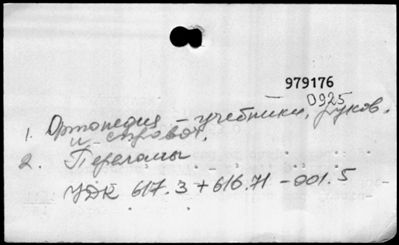 979176
0925
1. Ортопедия – учебники, руков.
и справоч.
2. Переломы
УДК 617.3 + 616.71 - 001.5